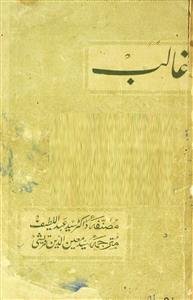 غالب
مصنفہ ڈاکٹر سید عبد اللطیف
مترجمہ سید معین الدین قریشی